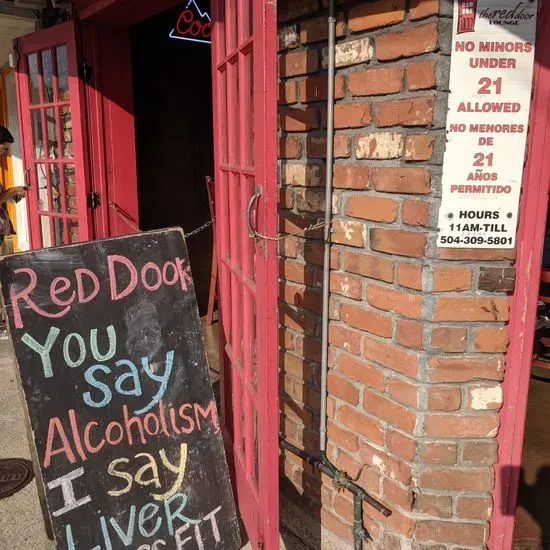 the red door
LOUNGE
NO MINORS
UNDER
21
ALLOWED
NO MENORES
DE
21
AÑOS
PERMITIDO
HOURS
11AM-TILL
504-309-5801
Coo
RED DOOR
YOU
say
Alcoholism
I say
Liver
FIT